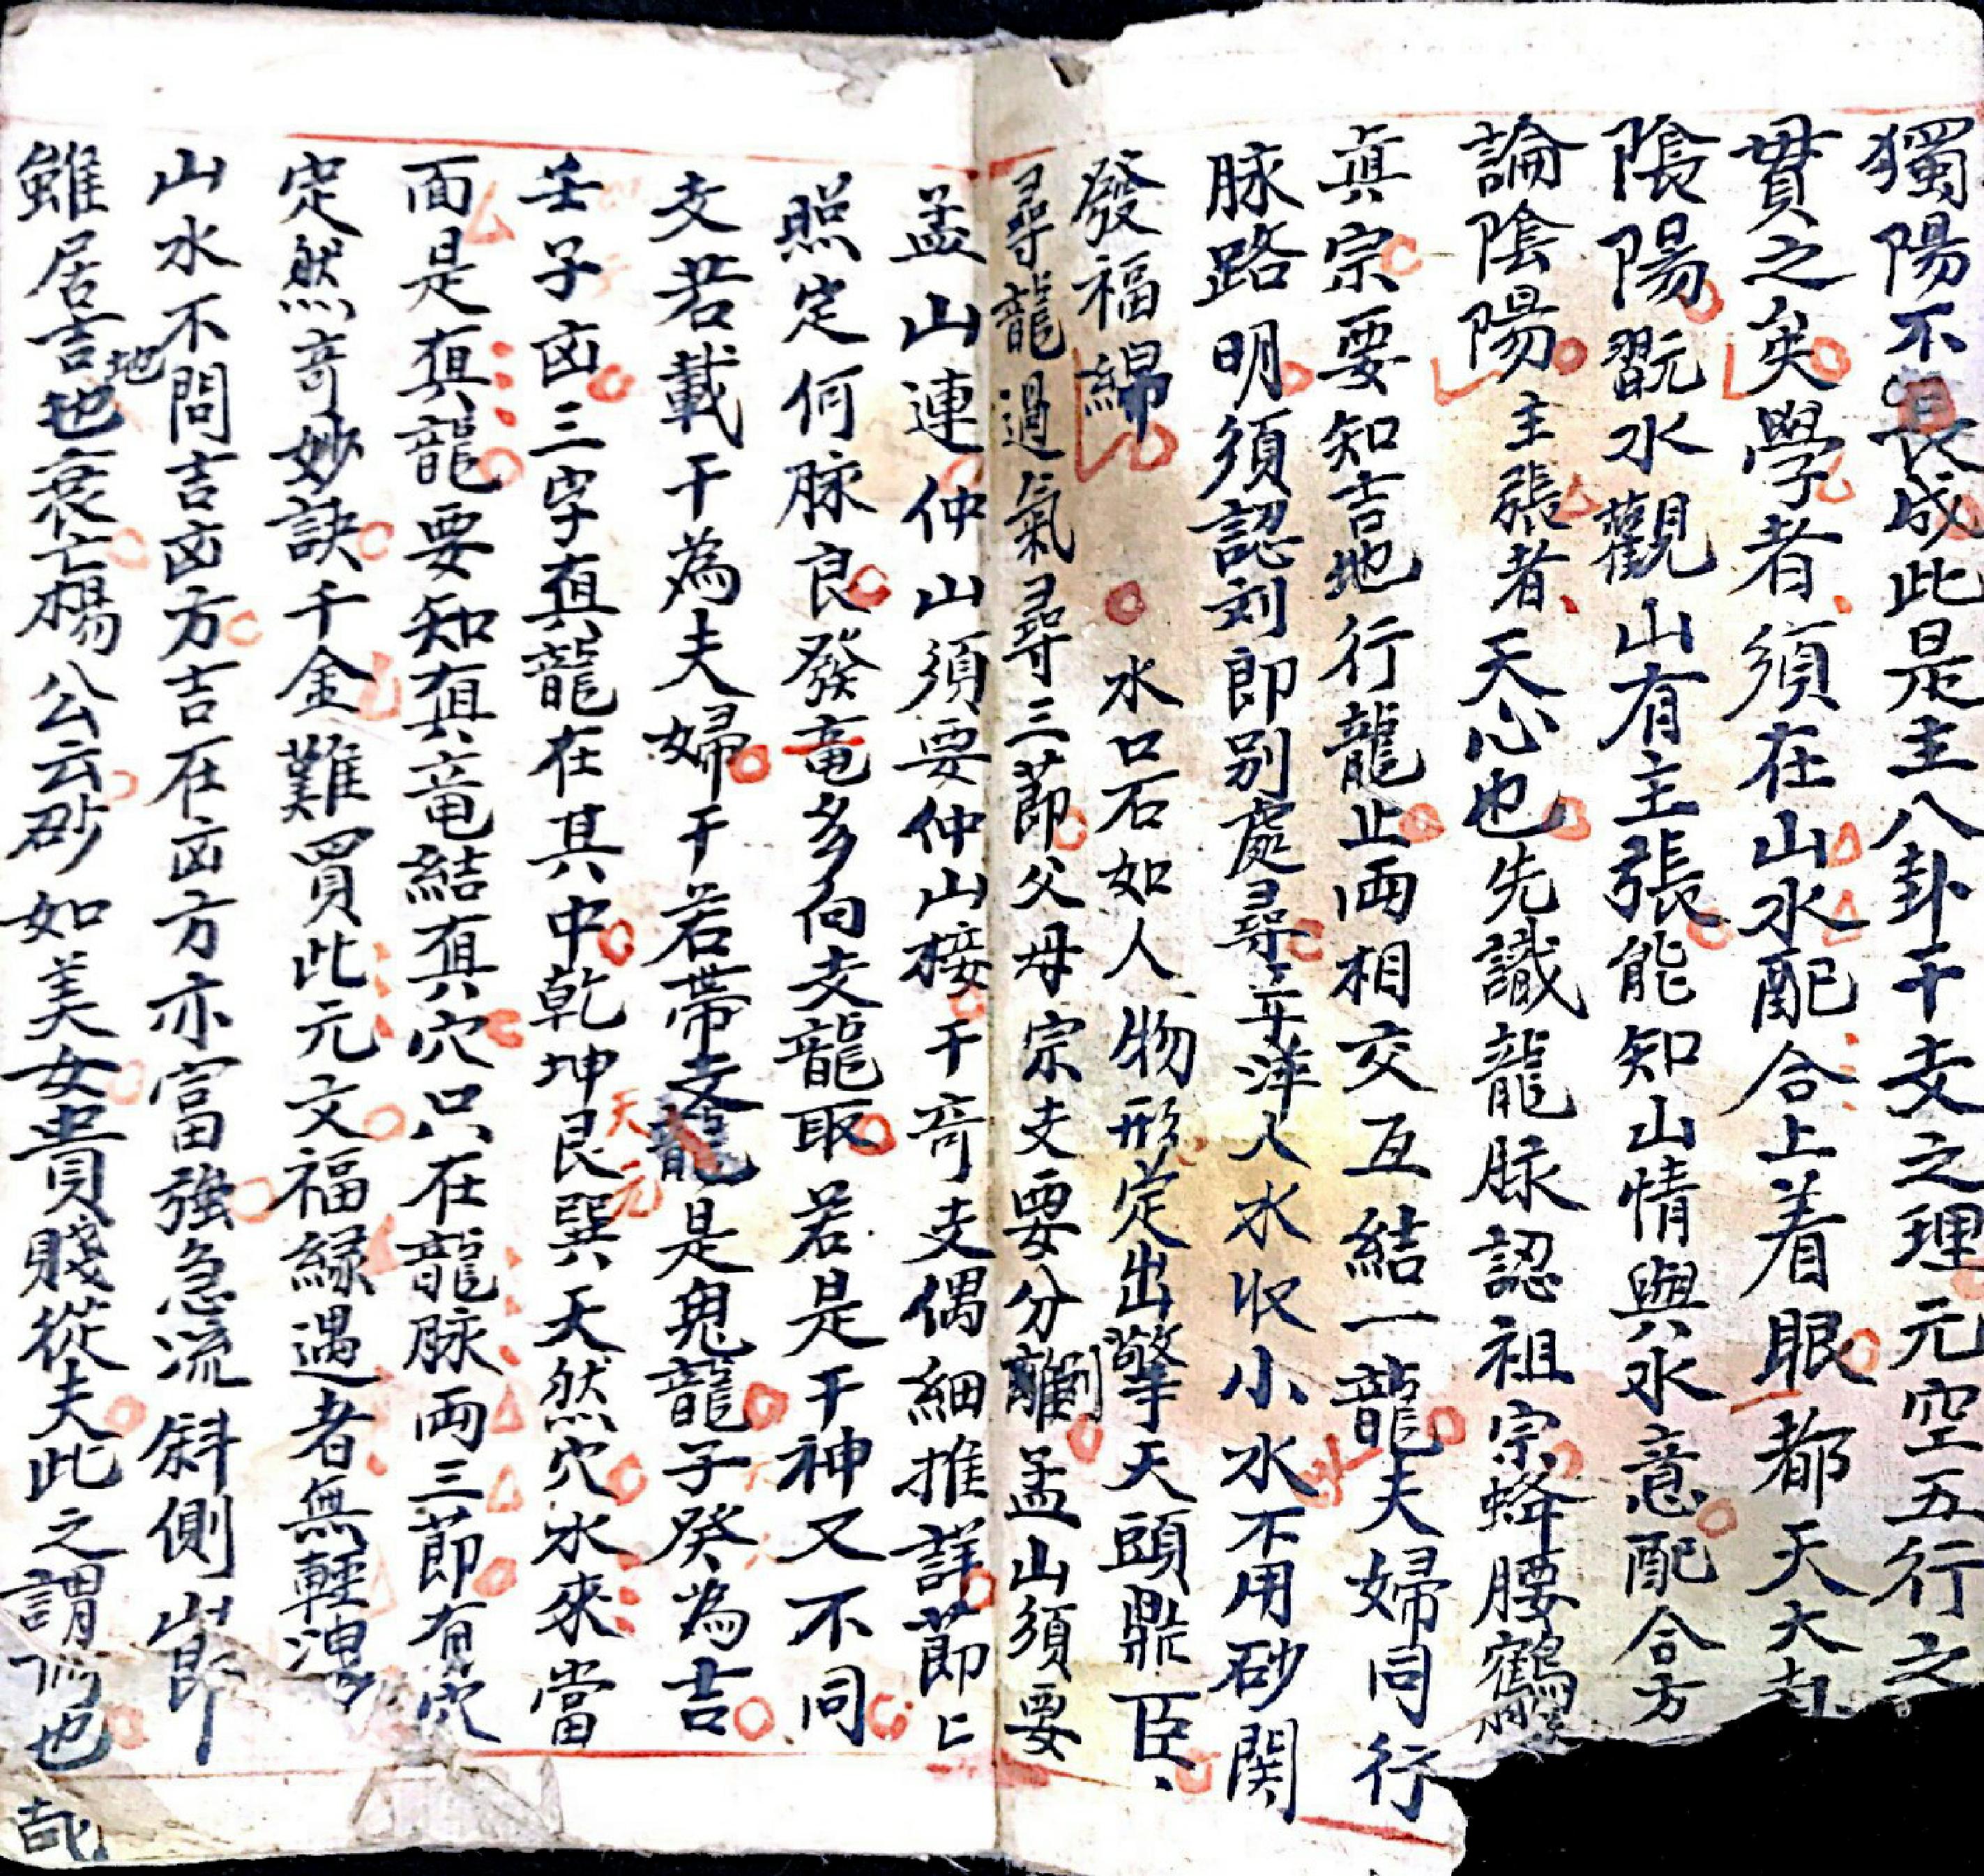 獨陽不長成此是主八卦干支之理元空五行之
貫之矣學者須在山水配合上着眼都天大卦
陰陽翫水觀山有主張能知山情與水意配合方
論陰陽主張者天心也先識龍脉認祖宗蜂腰鶴
真宗要知吉地行龍止両相交互結一龍夫婦同行
脉路明須認刘郎别處尋平洋人水收小水不用砂関
發福綿水口石如人物形定出擎天頭鼎臣
尋龍過氣尋三莭父母宗支要分離孟山須要
孟山連仲山須要仲山接干竒支偶細推詳莭
照定何脉良發竜多向支龍取若是干神又不同
支若載干為夫婦干若帶支龍是鬼龍子癸為吉
壬子凶三字真龍在其中乾坤艮巽天然穴水來當
天元
面是真龍要知真竜結真穴只在龍脉両三莭有穴
定然竒妙訣千金難買此元文福緣遇者無輕洩
山水不問吉凶方吉在凶方亦富強急流斜側
雖居吉地衰亡楊公云砂如美女貴賤從夫此之謂也
地